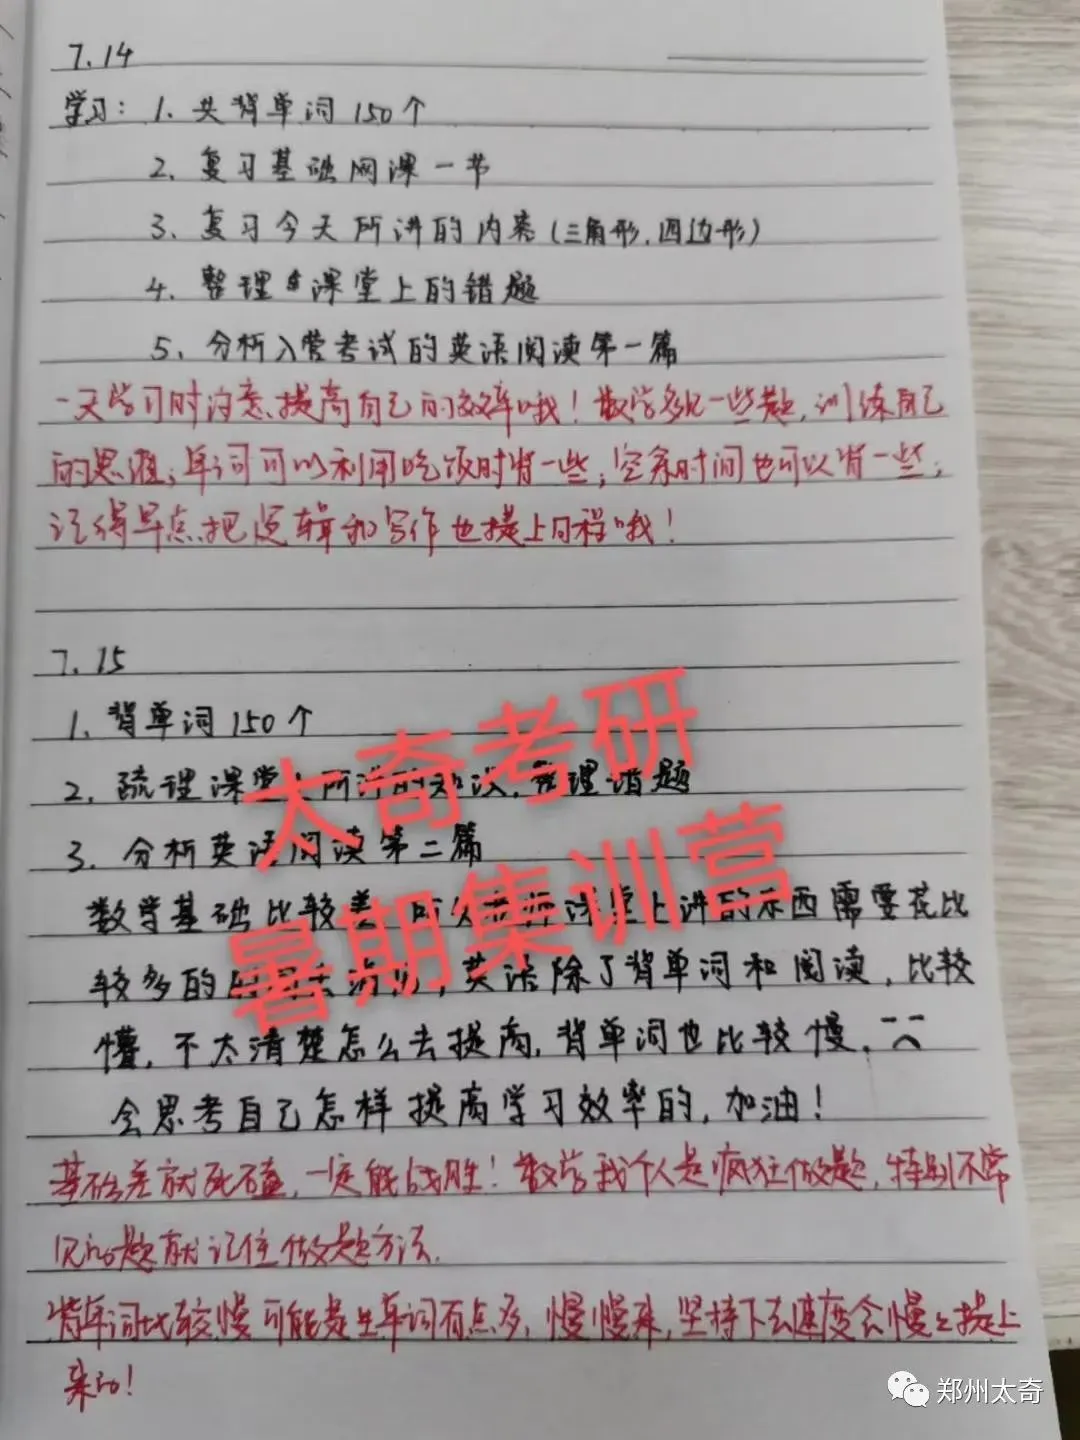 7.14
学习：1、共背单词150个
2、复习基础网课一节
3、复习今天所讲的内容（三角形，四边形）
4、整理课堂上的错题
5、分析入营考试的英语阅读第一篇
一天学习时注意提高自己的效率哦！数学多见一些题，训练自己
的思维；单词可以利用吃饭时背一些；空余时间也可以背一些；
记得早点把逻辑和写作也提上日程哦！
7.15
1、背单词150个
2、梳理课堂上所讲的知识，整理错题
3、分析英语阅读第二篇
数学基础比较差，所以 课堂上讲的东西需要花比
较多的时间去消化，英语除了背单词和阅读，比较
懵，不太清楚怎么去提高，背单词也比较慢。
会思考自己怎样提高学习效率的，加油！
基础差就死磕，一定能战胜！数学我个人是疯狂做题，特别不常
见的题就记住做题方法。
背单词比较慢可能是生单词有点多，慢慢来，坚持下去速度会慢慢提上
来的！
太奇考研
暑期集训营
郑州太奇